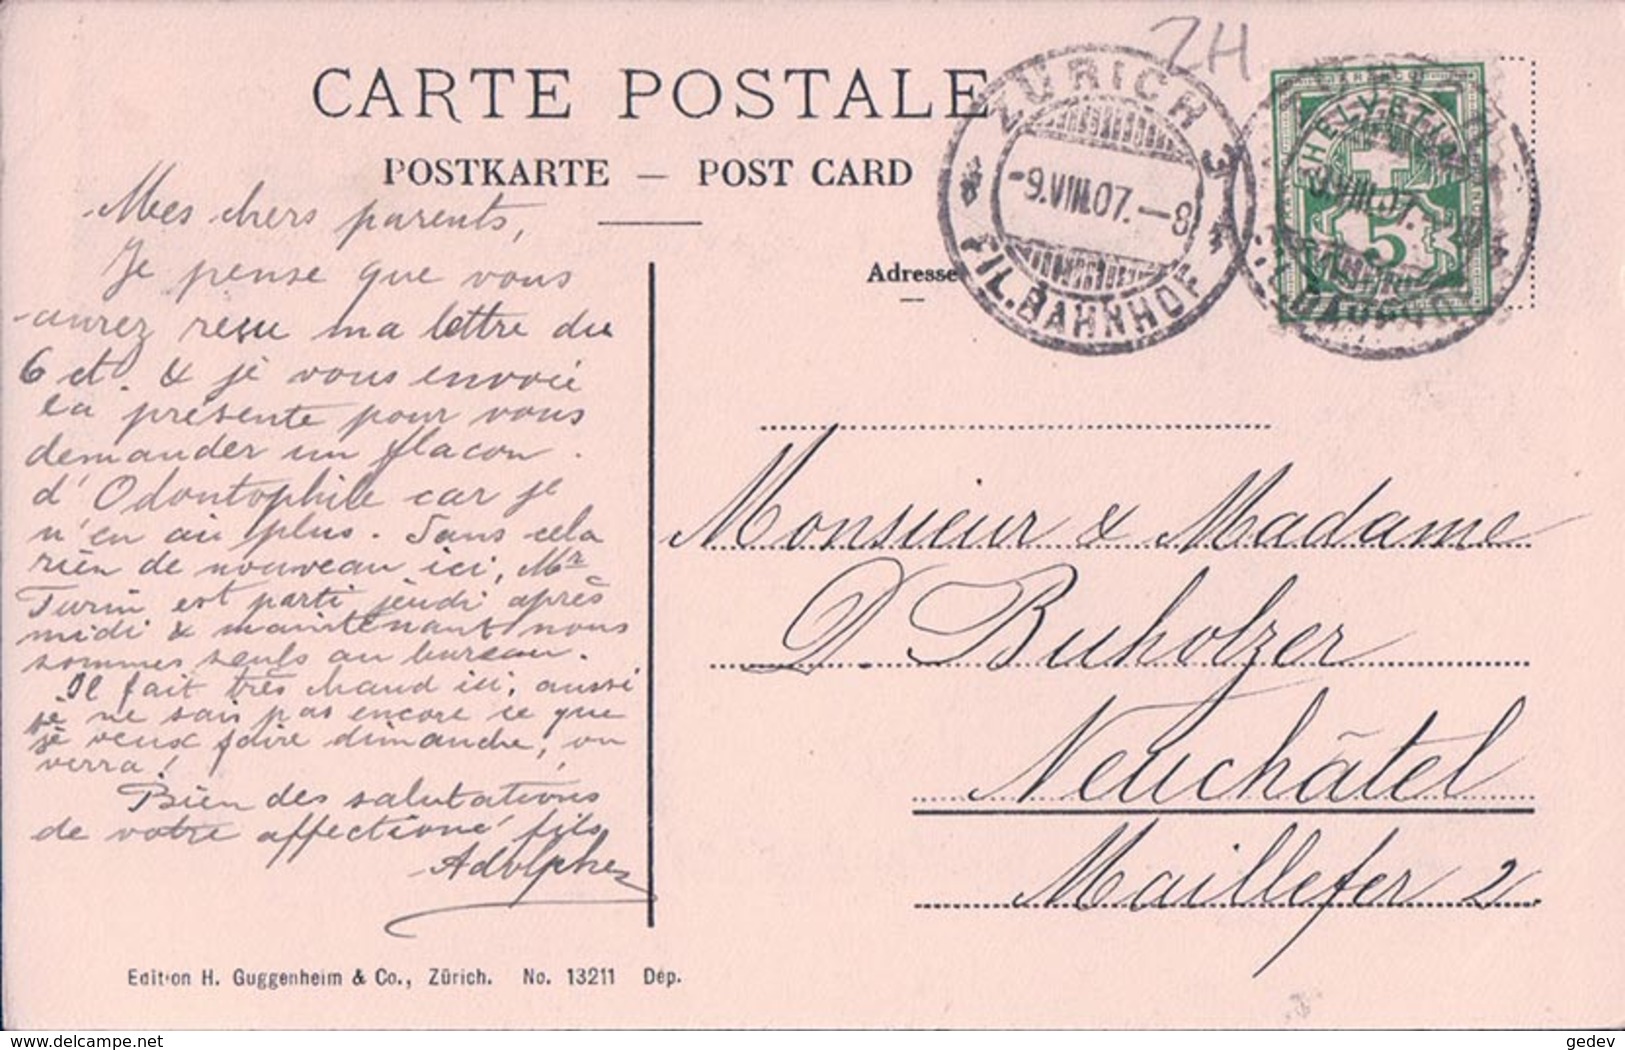 ZH
CARTE POSTALE
POSTKARTE — POST CARD
ZÜRICH 3
-9.VIII.07.—8
FIL. BAHNHOF
HELVETIA
5
-9.VIII.07.
Adresse
Mes chers parents,
Je pense que vous
aurez reçu ma lettre du
6 ct. & je vous envoie
la présente pour vous
demander un flacon
d'Odontophile car je
n'en ai plus. Sans cela
rien de nouveau ici, Mr
Turin est parti jeudi après
midi & maintenant nous
sommes seuls au bureau.
Il fait très chaud ici, aussi
je ne sais pas encore ce que
je veux faire dimanche, on
verra!
Bien des salutations
de votre affectionné fils
Adolphe
Monsieur & Madame
D. Buholzer
Neuchâtel
Maillefer 2.
Edition H. Guggenheim & Co., Zürich. No. 13211 Dép.
delcampe.net
gedev